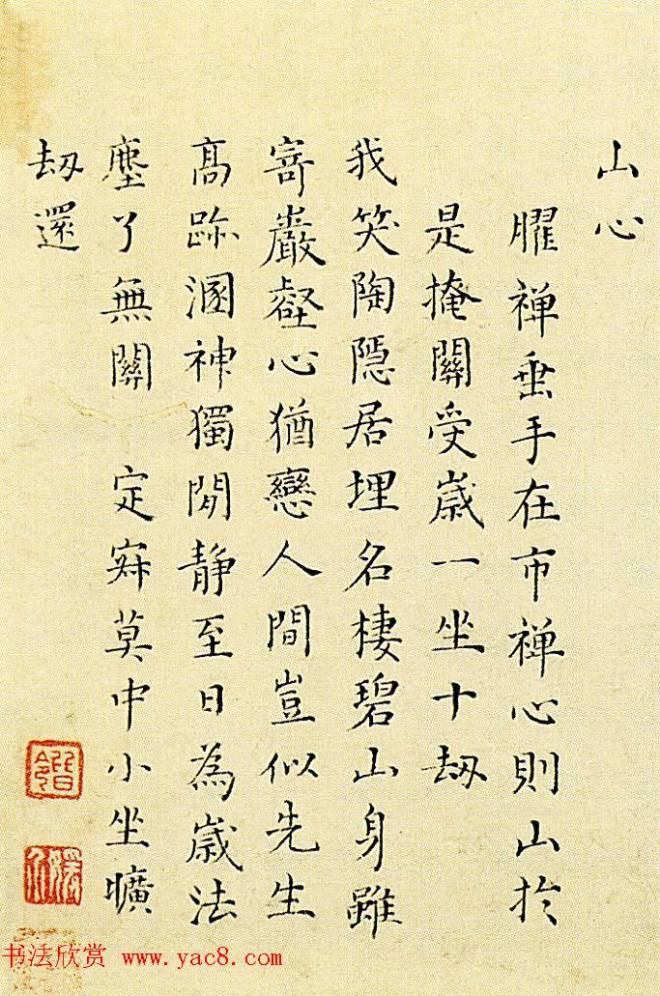 山心
臞禪垂手在市禪心則山於
是掩關受歲一坐十刼
我笑陶隱居埋名棲碧山身雖
寄巖壑心猶戀人間豈似先生
高跡溷神獨閒靜至日為歲法
塵了無關 定寂莫中小坐曠
刼還
书法欣赏 www.yac8.com